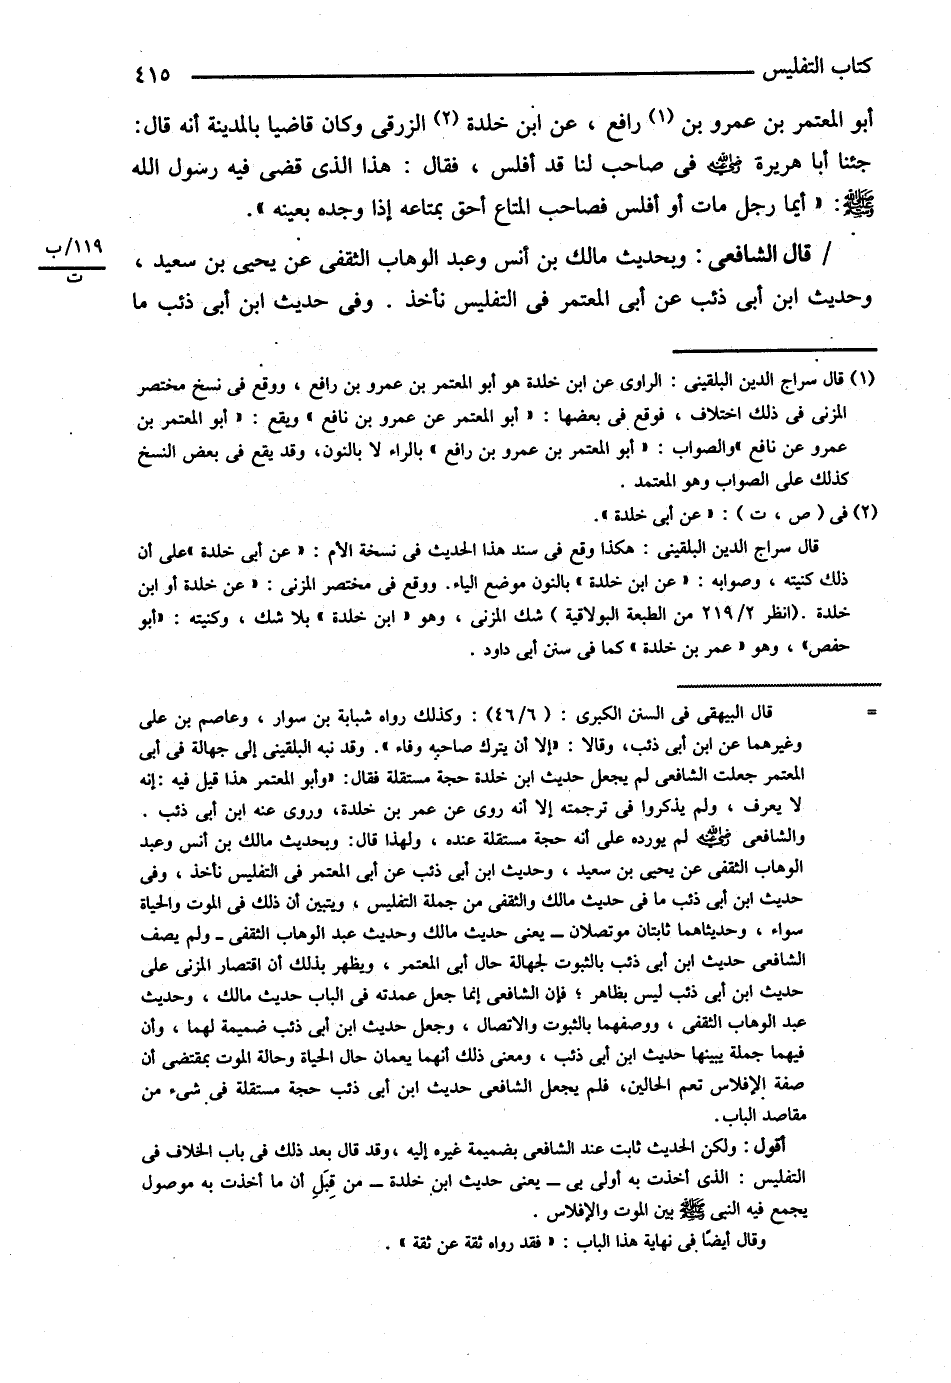 كتاب التفليس ٤١٥
أبو المعتمر بن عمرو بن (١) رافع ، عن ابن خلدة (٢) الزرقى وكان قاضيا بالمدينة أنه قال :
جئنا أبا هريرة رضي الله عنه فى صاحب لنا قد أفلس ، فقال : هذا الذى قضى فيه رسول الله
ﷺ : « أيما رجل مات أو أفلس فصاحب المتاع أحق بمتاعه إذا وجده بعينه » .
/ قال الشافعى : وبحديث مالك بن أنس وعبد الوهاب الثقفى عن يحيى بن سعيد ،
١١٩/ب
ت
وحديث ابن أبى ذئب عن أبى المعتمر فى التفليس نأخذ . وفى حديث ابن أبى ذئب ما
(١) قال سراج الدين البلقينى : الراوى عن ابن خلدة هو أبو المعتمر بن عمرو بن رافع ، ووقع فى نسخ مختصر
المزنى فى ذلك اختلاف ، فوقع فى بعضها : « أبو المعتمر عن عمرو بن نافع » ويقع : « أبو المعتمر بن
عمرو عن نافع »والصواب : « أبو المعتمر بن عمرو بن رافع » بالراء لا بالنون، وقد يقع فى بعض النسخ
كذلك على الصواب وهو المعتمد .
(٢) فى ( ص ، ت ) : « عن أبى خلدة ».
قال سراج الدين البلقينى : هكذا وقع فى سند هذا الحديث فى نسخة الأم : « عن أبى خلدة »على أن
ذلك كنيته ، وصوابه : « عن ابن خلدة » بالنون موضع الياء. ووقع فى مختصر المزنى : « عن خلدة أو ابن
خلدة .(انظر ٢١٩/٢ من الطبعة البولاقية ) شك المزنى ، وهو « ابن خلدة » بلا شك ، وكنيته : «أبو
حفص» ، وهو « عمر بن خلدة » كما فى سنن أبى داود .
= قال البيهقى فى السنن الكبرى : ( ٤٦/٦) : وكذلك رواه شبابة بن سوار ، وعاصم بن على
وغيرهما عن ابن أبى ذئب، وقالا : «إلا أن يترك صاحبه وفاء ». وقد نبه البلقينى إلى جهالة فى أبى
المعتمر جعلت الشافعى لم يجعل حديث ابن خلدة حجة مستقلة فقال: «وأبو المعتمر هذا قيل فيه :إنه
لا يعرف ، ولم يذكروا فى ترجمته إلا أنه روى عن عمر بن خلدة، وروى عنه ابن أبى ذئب .
والشافعى رضي الله عنه لم يورده على أنه حجة مستقلة عنده ، ولهذا قال: وبحديث مالك بن أنس وعبد
الوهاب الثقفى عن يحيى بن سعيد ، وحديث ابن أبى ذئب عن أبى المعتمر فى التفليس نأخذ ، وفى
حديث ابن أبى ذئب ما فى حديث مالك والثقفى من جملة التفليس ، ويتبين أن ذلك فى الموت والحياة
سواء ، وحديثاهما ثابتان موتصلان ــ يعنى حديث مالك وحديث عبد الوهاب الثقفى ـ ولم يصف
الشافعى حديث ابن أبى ذئب بالثبوت لجهالة حال أبى المعتمر ، ويظهر بذلك أن اقتصار المزنى على
حديث ابن أبى ذئب ليس بظاهر ؛ فإن الشافعى إنما جعل عمدته فى الباب حديث مالك ، وحديث
عبد الوهاب الثقفى ، ووصفهما بالثبوت والاتصال ، وجعل حديث ابن أبى ذئب ضميمة لهما ، وأن
فيهما جملة يبينها حديث ابن أبى ذئب ، ومعنى ذلك أنهما يعمان حال الحياة وحالة الموت بمقتضى أن
صفة الإفلاس تعم الحالين، فلم يجعل الشافعى حديث ابن أبى ذئب حجة مستقلة فى شىء من
مقاصد الباب.
أقول : ولكن الحديث ثابت عند الشافعى بضميمة غيره إليه ،وقد قال بعد ذلك فى باب الخلاف فى
التفليس : الذى أخذت به أولى بى ــ يعنى حديث ابن خلدة ــ من قِبَلِ أن ما أخذت به موصول
يجمع فيه النبى ﷺ بين الموت والإفلاس .
وقال أيضًا فى نهاية هذا الباب : « فقد رواه ثقة عن ثقة » .